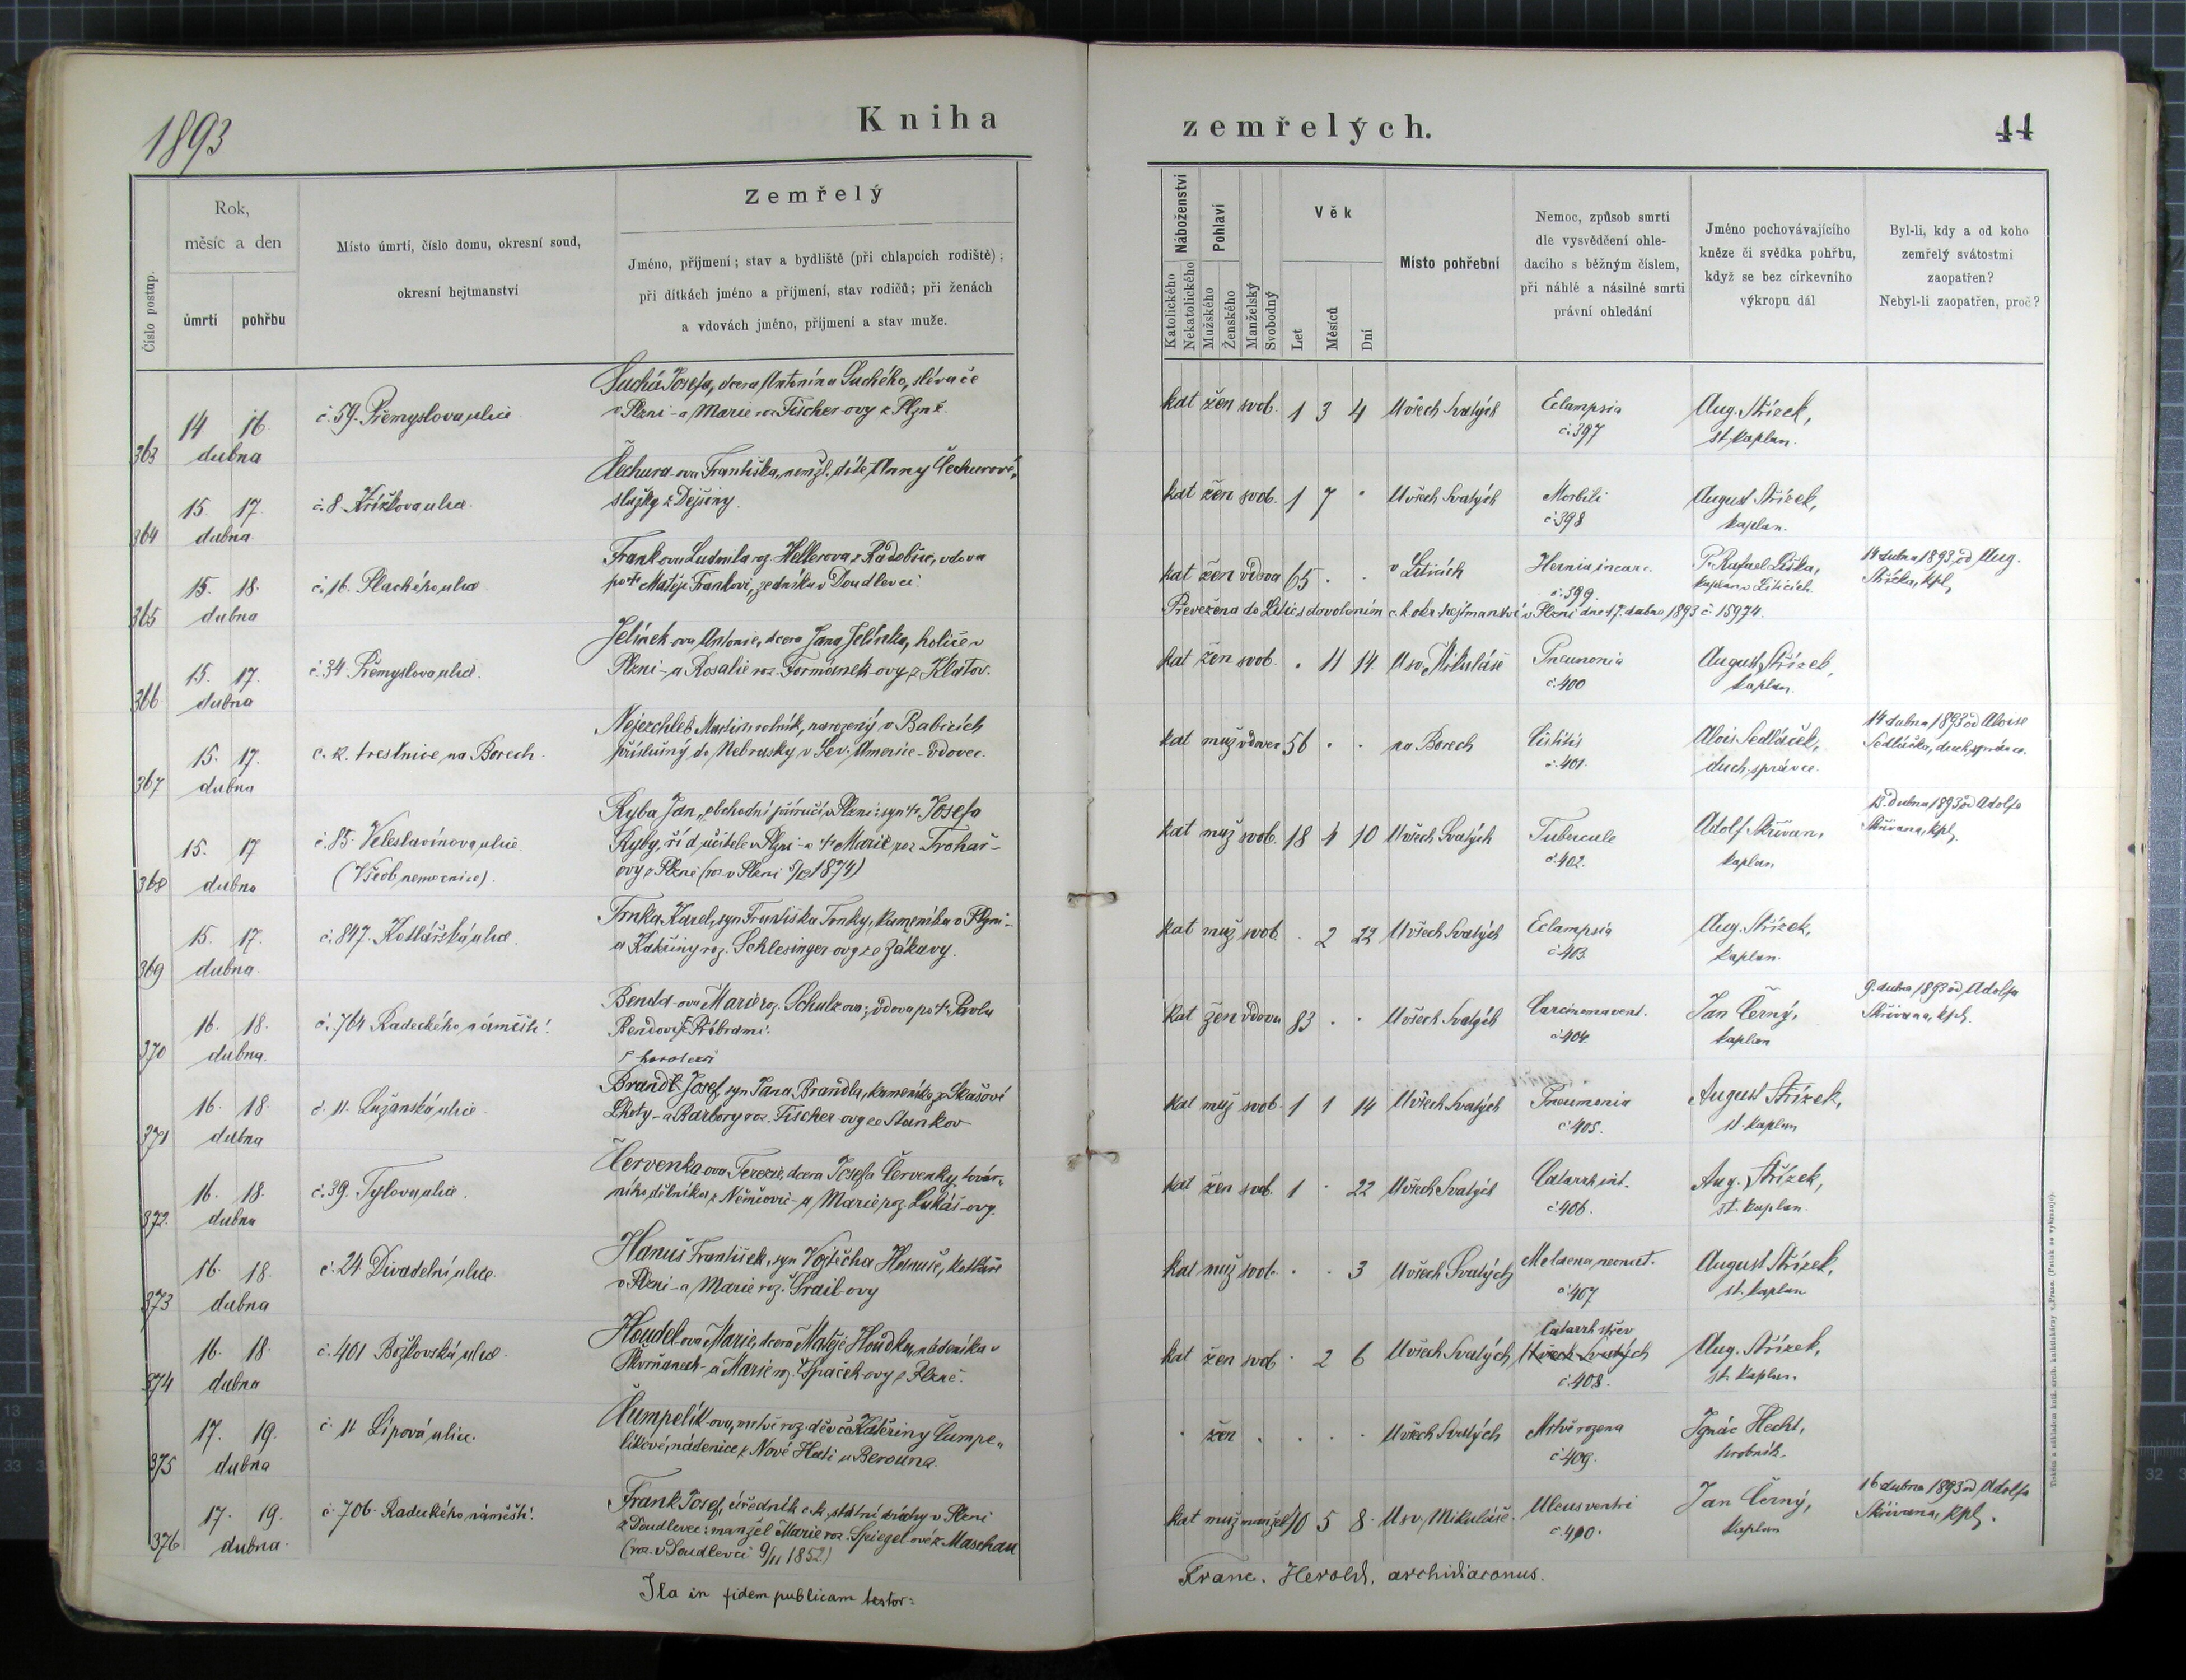 1893
Kniha
zemřelých.
44
Číslo postup.
Rok,
měsíc a den
úmrtí
pohřbu
Místo úmrtí, číslo domu, okresní soud,
okresní hejtmanství
Zemřelý
Jméno, příjmení; stav a bydliště (při chlapcích rodiště);
při dítkách jméno a příjmení, stav rodičů; při ženách
a vdovách jméno, příjmení a stav muže.
Náboženství
Katolického
Nekatolického
Pohlaví
Mužského
Ženského
Manželský
Svobodný
Věk
Let
Měsíců
Dní
Místo pohřební
Nemoc, způsob smrti
dle vysvědčení ohle-
dacího s běžným číslem,
při náhlé a násilné smrti
právní ohledání
Jméno pochovávajícího
kněze či svědka pohřbu,
když se bez církevního
výkropu dál
Byl-li, kdy a od koho
zemřelý svátostmi
zaopatřen?
Nebyl-li zaopatřen, proč?
363 14 16 dubna č. 59. Přemyslova ulice
Suchá Josefa, dcera Antonína Suchého, slévače
v Plzni - a Marie roz. Fischer-ovy z Plzně.
kat žen svob. 1 3 4 U všech Svatých Eclampsia č. 397 Aug. Střízek, st. kaplan.
364 15. 17. dubna č. 8 Křížkova ulice.
Čechura-ova Františka, nemžl. dítě Anny Čechurové,
služky z Dejšiny.
kat žen svob. 1 7 · U všech Svatých Morbili č. 398 August Střízek, kaplan.
365 15. 18. dubna č. 16. Plachého ulice
Frank ova Ludmila roz. Hellerova z Radobčic, vdova
po † Matěji Frankovi, zedníku v Doudlevci.
kat žen vdova 65 · · v Liticích Hernia incarc. č. 399. P. Rafael Liška, kaplan v Liticích. 14 dubna 1893 od Aug. Střízka, kpl.
Převezena do Litic s dovolením c. k. okr. hejtmanství v Plzni dne 17. dubna 1893 č. 15974.
366 15. 17. dubna č. 34. Přemyslova ulice.
Jelínek-ova Antonie, dcera Jana Jelínka, holiče v
Plzni - a Rosalie roz. Formánek-ovy z Klatov.
kat žen svob. · 11 14. U sv. Mikuláše Pneumonia č. 400 August Střízek, kaplan.
367 15. 17. dubna c. k. trestnice na Borech.
Nejezchleb Martin rolník, narozený v Babicích
příslušný do Nebrasky v Sev. Americe - vdovec.
kat muž vdovec 56 · · na Borech č. 401. Alois Sedláček, duch. správce. 14 dubna 1893 od Aloise Sedláčka, duch. správce.
368 15. 17 dubna č. 85. Veleslavínova ulice (Všeob. nemocnice).
Ryba Jan, obchodní příručí v Plzni: syn † Josefa
Ryby, říd. učitele v Plzni - a † Marie roz. Trohař-
ovy z Plzně (roz. v Plzni 5/12 1874)
kat muž svob. 18 4 10 U všech Svatých Tubercule č. 402. Adolf Skřivan, kaplan 13. dubna 1893 od Adolfa Skřivana, kpl.
369 15. 17. dubna. č. 847. Kotlářská ulice.
Trnka Karel, syn Františka Trnky, kameníka v Plzni -
a Kateřiny roz. Schlesinger-ovy ze Zákavy.
kat muž svob. · 2 22 U všech Svatých Eclampsia č. 403. Aug. Střízek, kaplan.
370 16. 18. dubna. č. 764 Radeckého náměstí.
Benda-ova Marie roz. Schulzova; vdova po † Pavlu
Bendovi z Příbrami.
kat žen vdova 83 · · U všech Svatých Carcinoma vent. č. 404. Jan Černý, kaplan 9. dubna 1893 od Adolfa Skřivana, kpl.
371 16. 18. dubna č. 11. Lužanská ulice.
Brandl Josef, syn Jana Brandla, kameníka ze Skašovi
Lhoty - a Barbory roz. Fischer-ovy ze Stankov
kat muž svob. 1 1 14 U všech Svatých Pneumonia č. 405. August Střízek, st. kaplan
372. 16. 18. dubna č. 39. Tylova ulice.
Červenka ova Terezie, dcera Josefa Červenky, továr-
ního dělníka z Němčovic - a Marie roz. Lukáš-ovy.
kat žen svob. 1 · 22 U všech Svatých Catarrh int. č. 406. Aug. Střízek, st. kaplan.
373 16. 18. dubna č. 24 Divadelní ulice.
Hanuš František, syn Vojtěcha Hanuše, kotláře
v Plzni - a Marie roz. Šrail-ovy
kat muž svob. · · 3 U všech Svatých Melaena neonat. č. 407 August Střízek, st. kaplan
374 16. 18. dubna č. 401 Božkovská ulice.
Houdek ova Marie, dcera Matěje Houdka, nádeníka v
Skvrňanech - a Marie roz. Špaček-ovy z Plzně.
kat žen svob. · 2 6 U všech Svatých Catarrh střev U všech Svatých č. 408. Aug. Střízek, st. kaplan.
375 17. 19. dubna č. 11 Lipová ulice.
Čumpelík-ova, mrtvě roz. děvče Kateřiny Čumpe-
líkové, nádenice z Nové Huti u Berouna.
· žen · · · · U všech Svatých Mrtvě rozena č. 409. Ignác Hecht, hrobník.
376 17. 19. dubna. č. 706. Radeckého náměstí.
Frank Josef, úředník c. k. státní dráhy v Plzni
z Doudlevec: manžel Marie roz. Spiegel-ové z Maschau
(roz. v Doudlevci 9/11 1852)
kat muž manžel 40 5 8. U sv. Mikuláše. Ulcus ventri č. 410. Jan Černý, kaplan 16 dubna 1893 od Adolfa Skřivana, kpl.
Ita in fidem publicam testor:
Franc. Herold, archidiaconus.